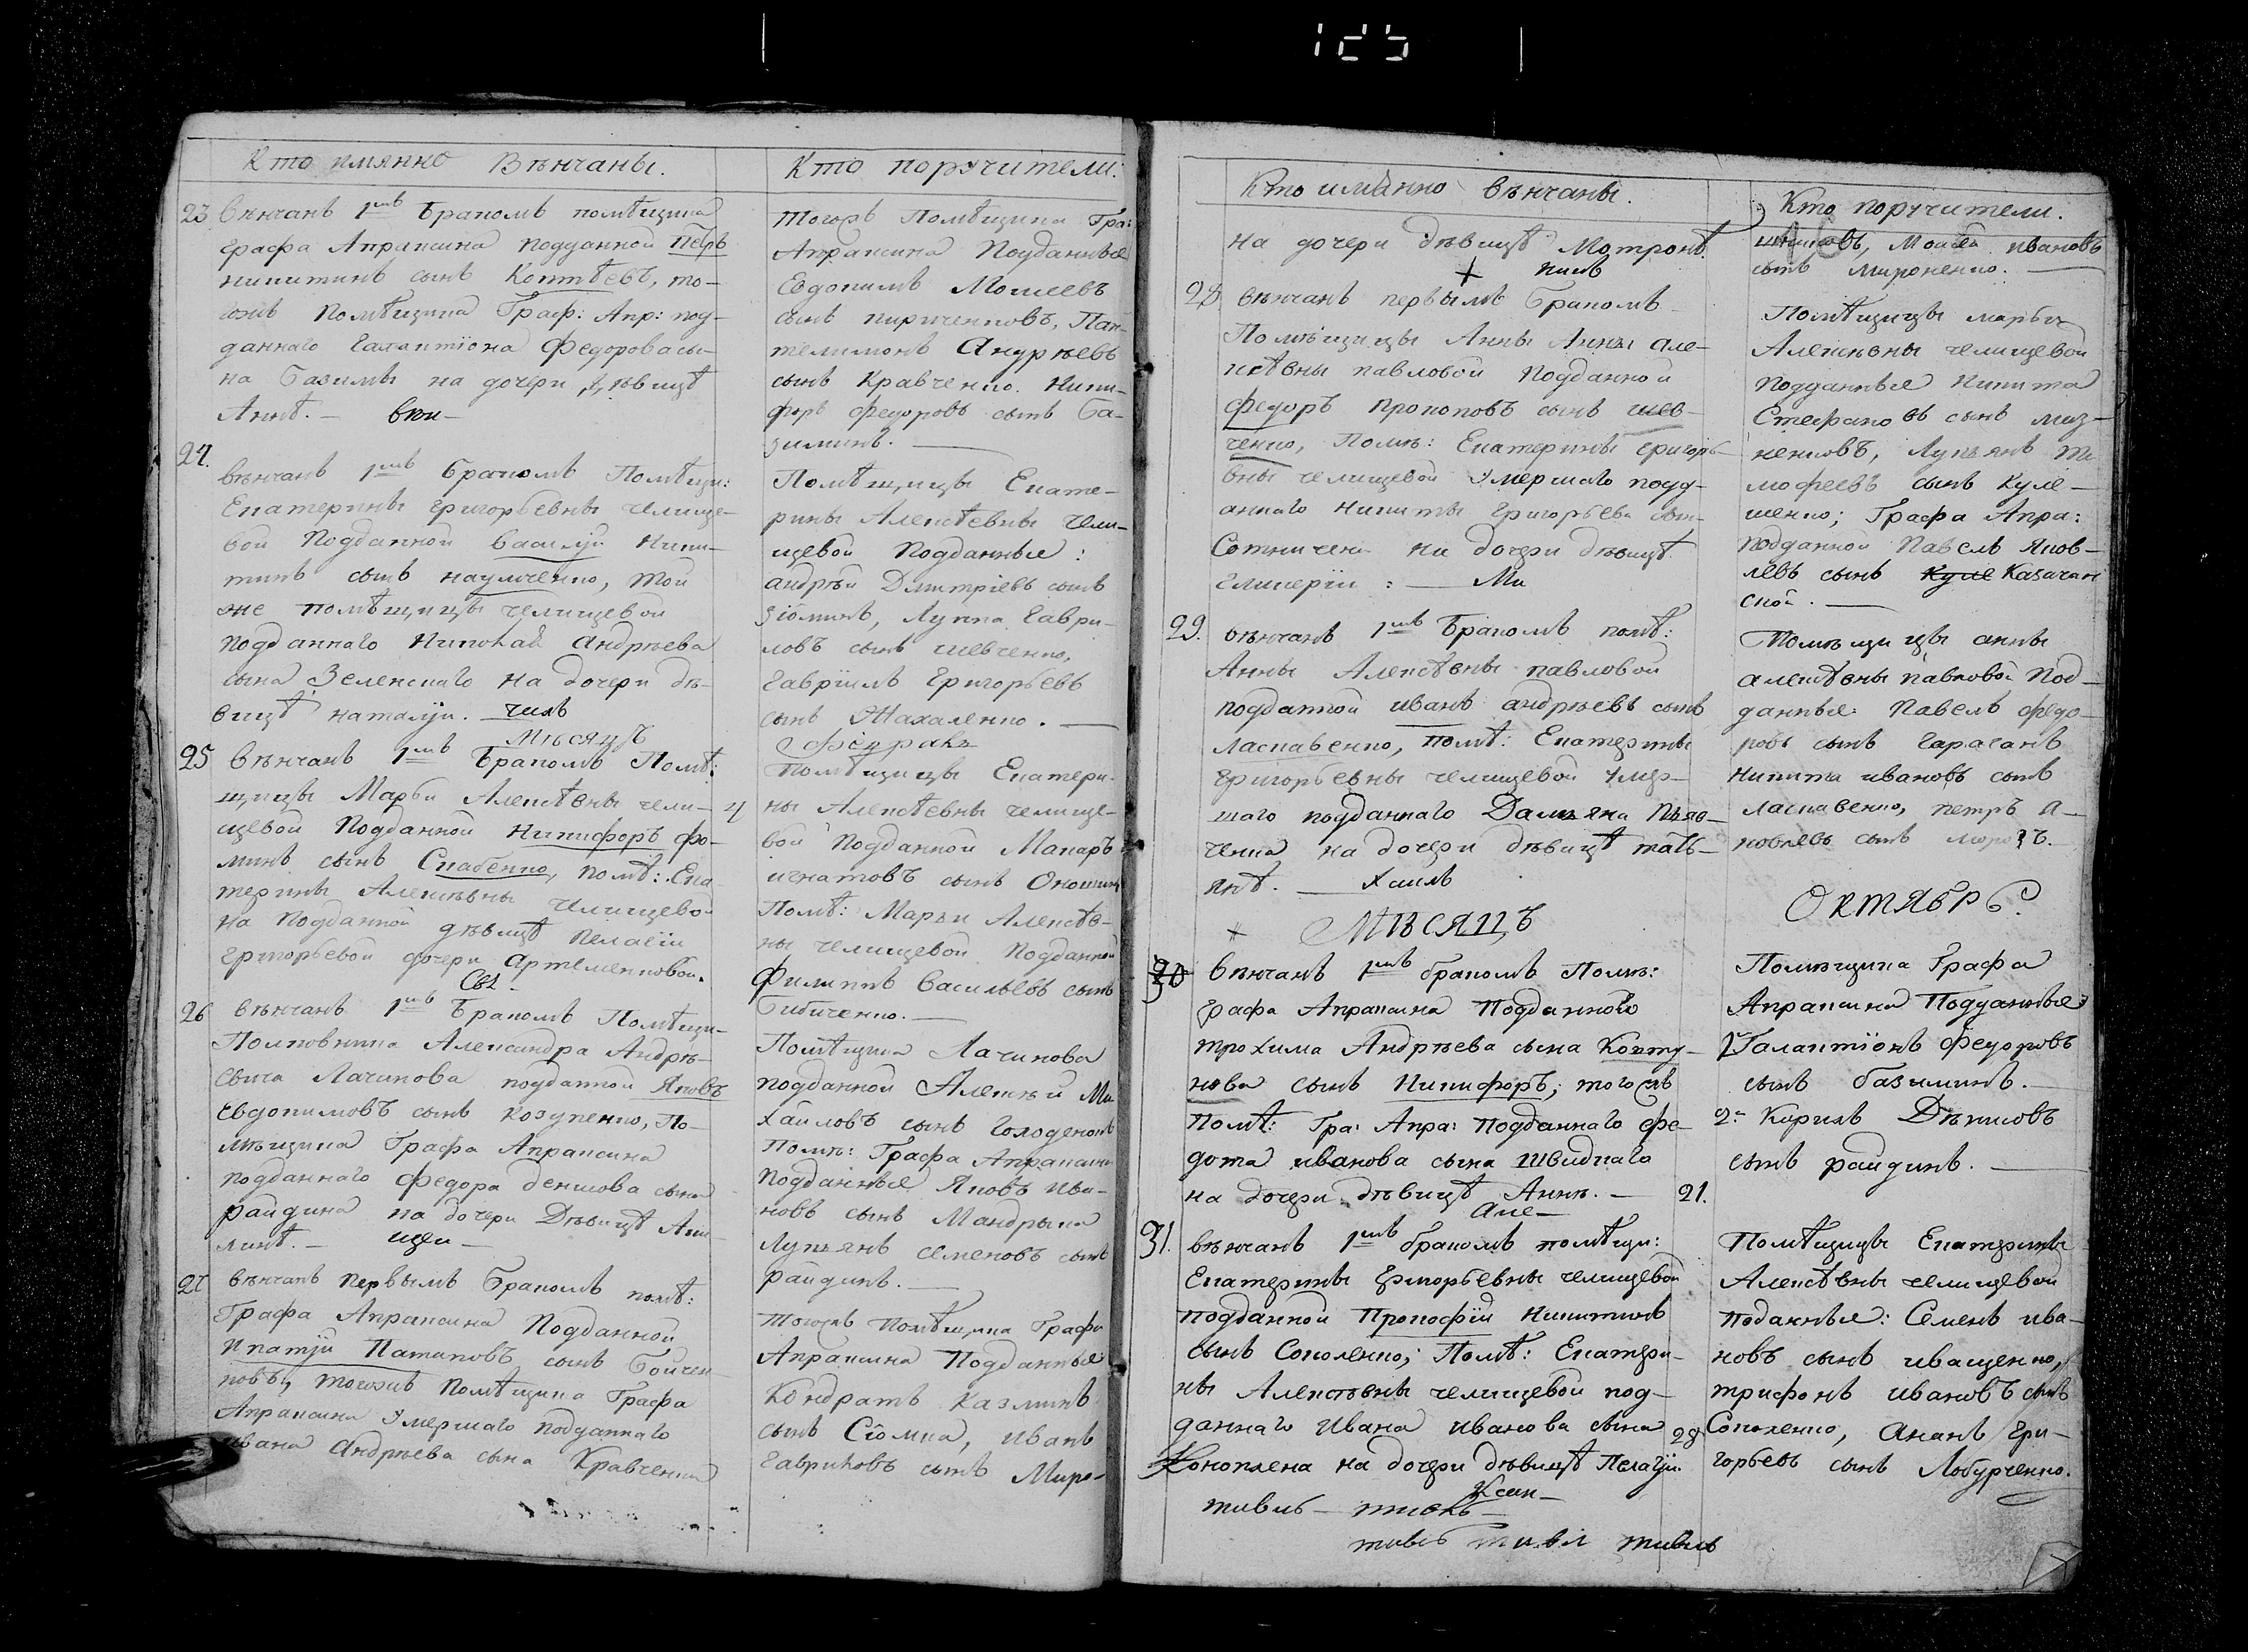 125
Кто имянно Вѣнчаны.
23 Вѣнчанъ 1мъ Бракомъ помѣщика
графа Апраксина подданной Петръ
никитинъ сынъ Коптѣевъ, то-
гожъ Помѣщика Граф: Апр: под-
даннаго Галактïона федорова сы-
на базимы на дочери дѣвицѣ
Аннѣ. —
24.
вѣнчанъ 1мъ бракомъ Помѣщи:
Екатерины григорьевны челище-
вой Подданной Василïй Ники-
тинъ сынъ наумченко, той
же помѣщицы челищевой
подданнаго Николая андрѣева
сына Зеленскаго на дочери дѣ-
вицѣ наталïи.
Мѣсяцъ
25 Вѣнчанъ 1мъ Бракомъ Помѣ:
щицы Марьи Алексѣвны чели-
щевой Подданной Никифоръ фо-
минъ сынъ Скабенко, помѣ: Ека
терины Алексѣвны челищевой
на Подданной дѣвицѣ Пелагïи
григорьевой дочери артеменковой.
26 вѣнчанъ 1мъ Бракомъ Помѣщи-
Полковника Александра Андрѣ-
евича Лачинова подданной Яковъ
Евдокимовъ сынъ козупенко, По-
мѣщика Графа Апраксина
подданнаго федора денисова сына
райдина на дочери Дѣвицѣ Аки-
линѣ. —
27 вѣнчанъ первымъ Бракомъ помѣ:
Графа Апраксина Подданной
Ипатïй Патаповъ сынъ Бойчен
ковъ, тогожъ Помѣщика Графа
Апраксина умершаго подданнаго
ивана андрѣева сына Кравченка
Кто поручители:
тогожъ Помѣщика Гра:
Апраксина Подданные
Евдокимъ Моисеевъ
сынъ кириченковъ, Пан-
телимонъ Андрѣевъ
сынъ Кравченко. Ники-
форъ федоровъ сынъ ба-
зиминъ. —
Помѣщицы Екате-
рины Алексѣевны чели-
щевой Подданные:
андрѣй Дмитрïевъ сынъ
зïоминъ, Луппа Гаври-
ловъ сынъ шевченко,
гаврïилъ Григорьевъ
сынъ Махаленко. —
Помѣщицы Екатери-
ны Алексѣевны челище-
вой Подданной Макаръ
игнатовъ сынъ
Помѣ: Марьи Алексѣв-
ны челищевой Подданной
филиппъ васильевъ сынъ
бибиченко. —
Помѣщика Лачинова
подданной Алексѣй Ми
хайловъ сынъ
Помѣ: Графа Апраксина
Подданные Яковъ ива-
новъ сынъ Мандрыка
Лукьянъ семеновъ сынъ
райдинъ. —
тогожъ Помѣщика Графа
Апраксина Подданные
Кондратъ казминъ
сынъ Сïомка, иванъ
гавриловъ сынъ Миро-
Кто имянно вѣнчаны.
на дочери дѣвицѣ Мотронѣ.
28 вѣнчанъ первымъ Бракомъ
Помѣщицы Анны Анны але-
ксѣвны павловой Подданной
федоръ прокоповъ сынъ шев-
ченко, Помѣ: Екатерины григорь-
вны челищевой умершаго подд-
аннаго никиты григорьева сын-
на дочери дѣвицѣ
гликерïи: —
29. вѣнчанъ 1мъ Бракомъ помѣ:
Анны Алексѣвны павловой
подданной иванъ андрѣевъ сынъ
ласкавенко, помѣ: Екатерины
григорьевны челищевой умер-
шаго подданнаго Дамьяна
на дочери дѣвицѣ тать-
янѣ. —
Мѣсяцъ
30 Вѣнчанъ 1мъ бракомъ Помѣ:
графа Апраксина Подданного
трохима Андрѣева сына Колту-
нова сынъ Никифоръ; тогожъ
Помѣ: Гра: Апра: подданнаго фе-
дота иванова сына Швидкаго
на дочери дѣвицѣ Аннѣ. —
31. вѣнчанъ 1мъ бракомъ помѣщи:
Екатерины григорьевны челищевой
подданной Прокофïй Никитинъ
сынъ Соколенко; Помѣ: Екатери-
ны Алексѣевны челищевой под-
даннаго ивана иванова сына
на дочери дѣвицѣ Пелагïи.
Кто поручители.
Моисей ивановъ
сынъ мироненко. —
Помѣщицы марьи
Алексѣвны челищевой
подданные Никита
Стефановъ сынъ миз-
ненковъ, Лукьянъ ти
мофеевъ сынъ куле-
шенко; Графа Апра:
подданной Павелъ яков-
левъ сынъ Куле Казачан
ской. —
Помѣщицы анны
алексѣвны павловой под-
данные: Павелъ федо-
ровъ сынъ гараганъ
никита ивановъ сынъ
ласкавенко, петръ я-
ковлевъ сынъ морозъ.
Октябрь.
Помѣщика Графа
Апраксина Подданные
1 Галактïонъ федоровъ
сынъ базиминъ. —
2 Кирилъ Дѣнисовъ
сынъ райдинъ. —
21.
Помѣщицы Екатерины
Алексѣвны челищевой
подданные: Семенъ ива-
новъ сынъ иващенко,
трифонъ ивановъ сынъ
28 Соколенко, Ананъ гри-
горьевъ сынъ Лобурченко.